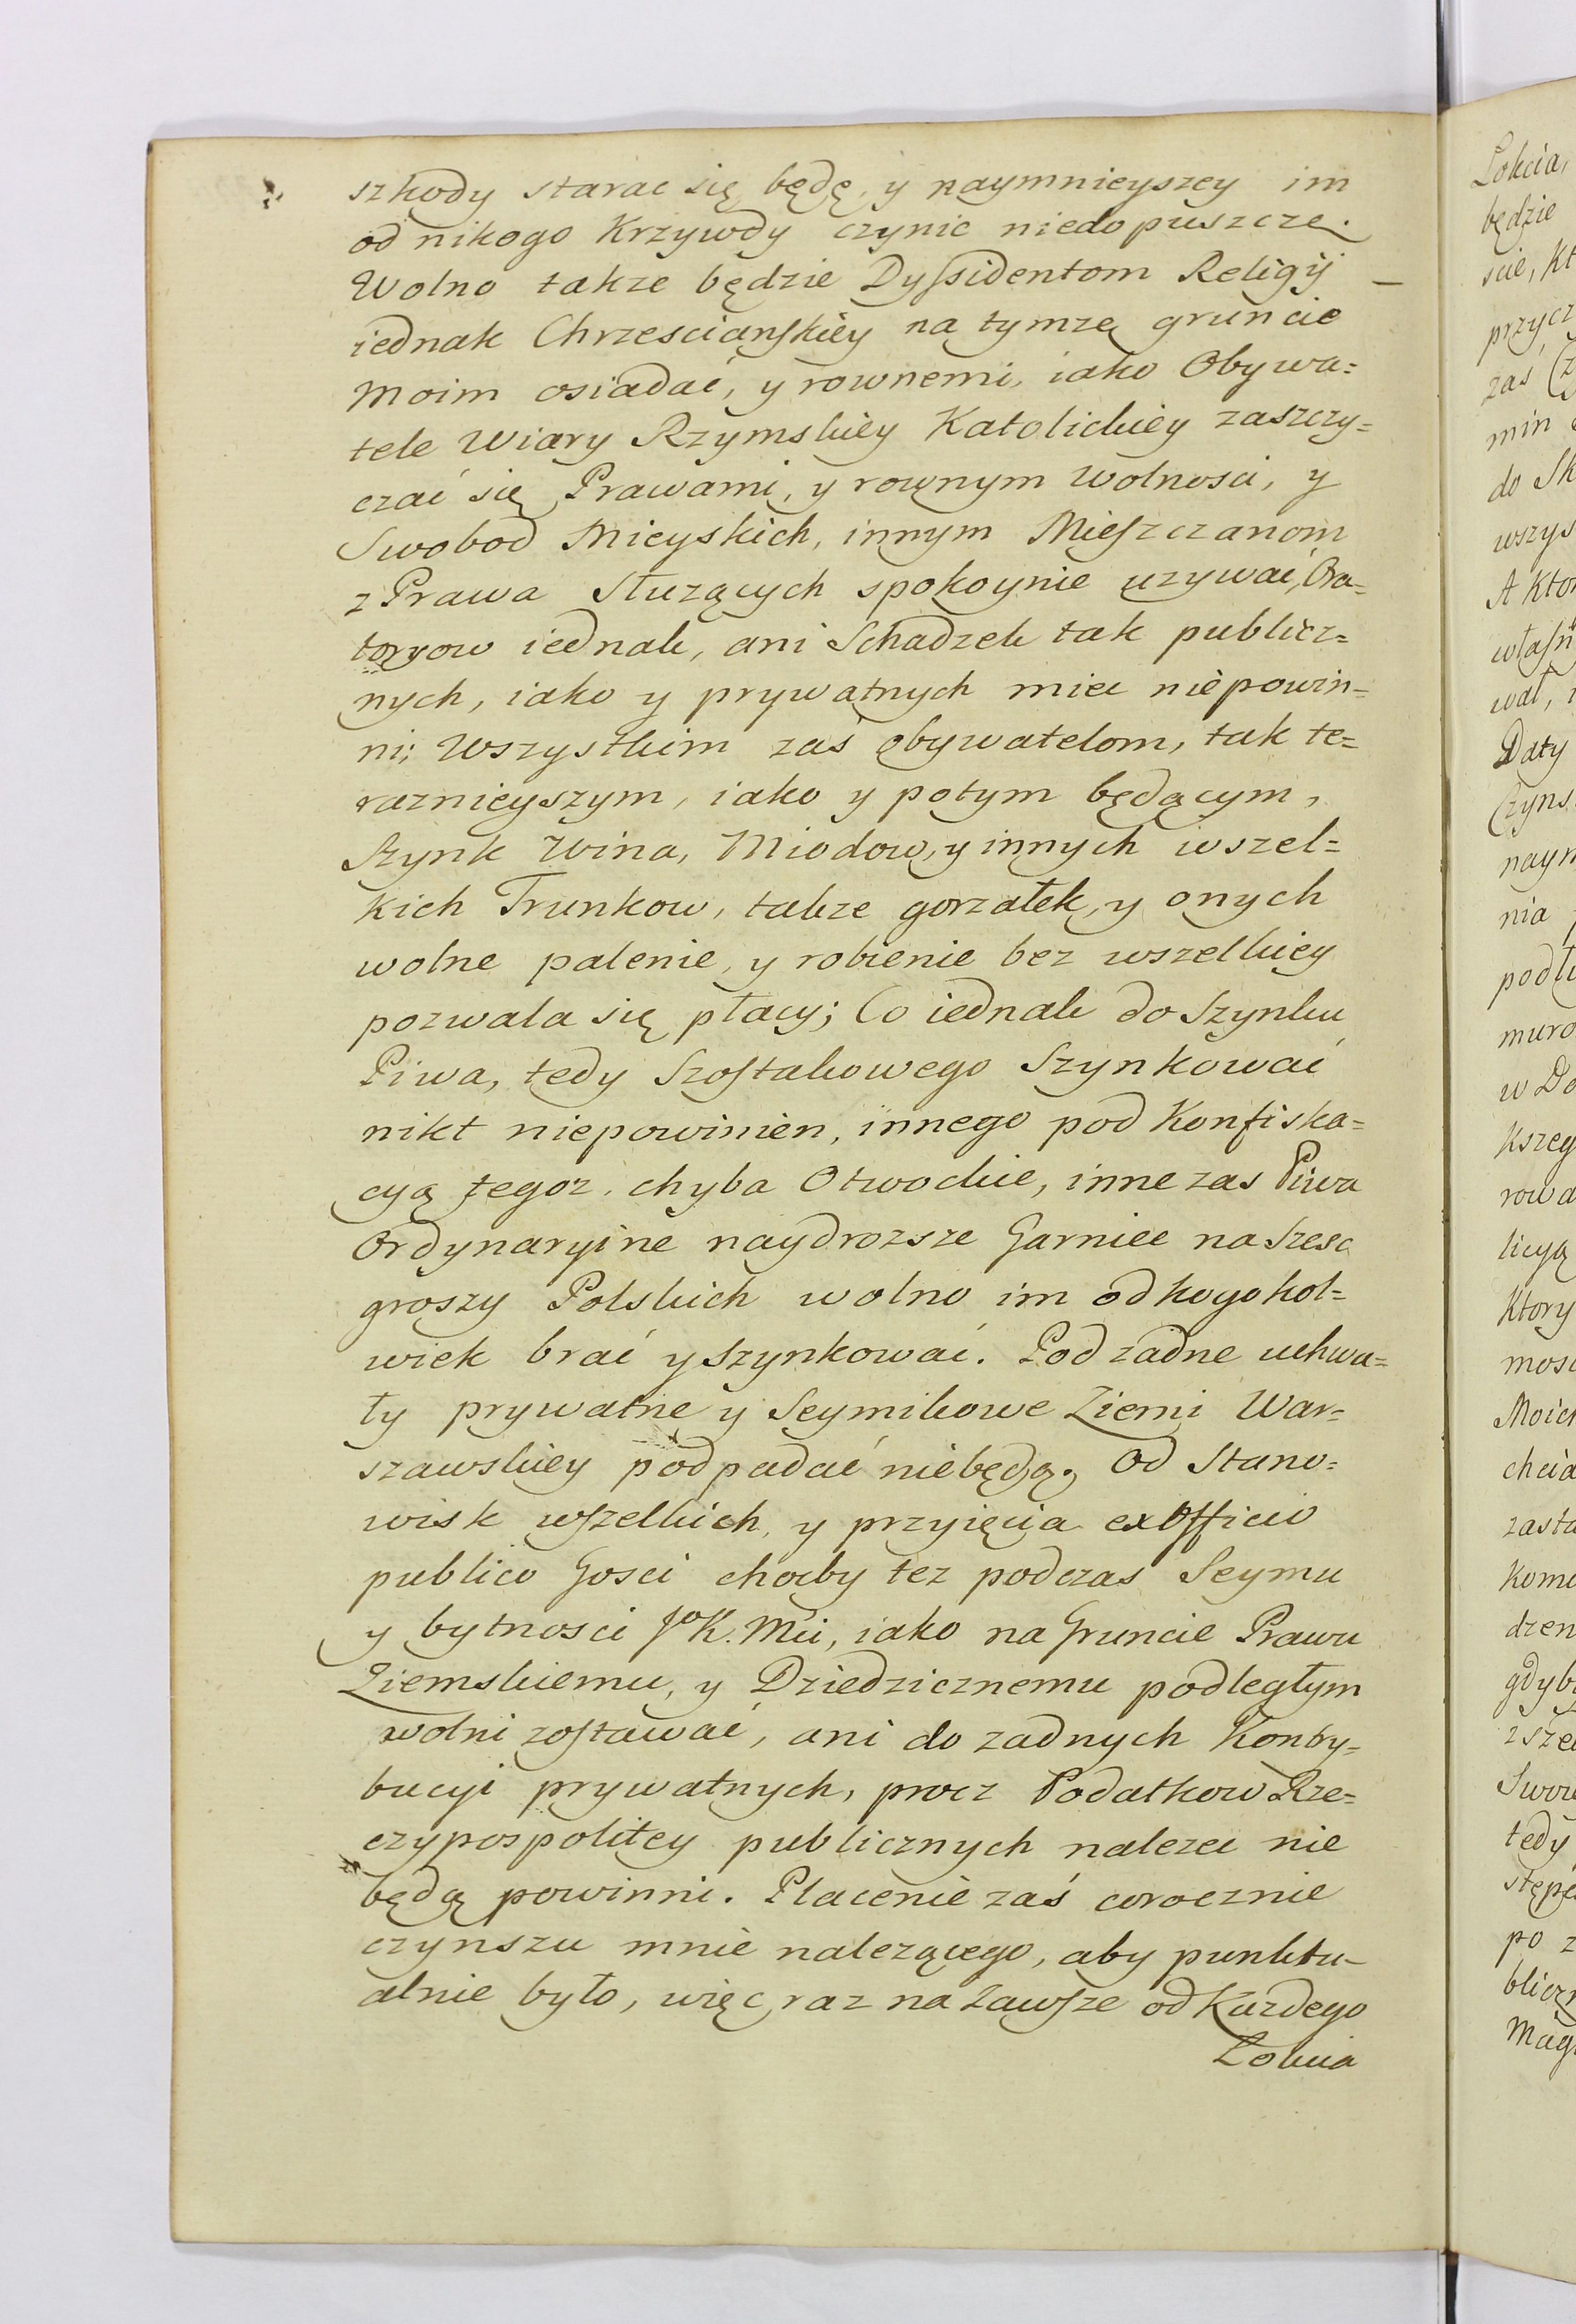 szkody starac się będę, y naymnieyszey im
od nikogo Krzywdy czynic niedopuszczę.
Wolno takze będzie Dyſsidentom Religij –
iednak Chrzescianſkiey na tymze gruncie
moim osiadać, y rownemi, iako Obywa=
tele Wiary Rzymskiey Katolickiey zaszczy=
czać się Prawami, y rownym Wolnosci, y
Swobod Mieyskich, innym Mieſzczanom
z Prawa Służących spokoynie uzywać, Ora=
toryow iednak, ani Schadzek tak publicz=
nych, iako y prywatnych miec niepowin=
ni; Wszystkim zaś obywatelom, tak te=
raznieyszym, iako y potym będącym,
Szynk Wina, Miodow, y innych wszel=
kich Trunkow, takze gorzałek, y onych
wolne palenie, y robienie bez wszelkiey
pozwala się płacy; Co iednak do Szynku
Piwa, tedy Szoſtakowego Szynkować
nikt niepowinien, innego pod Konfiska=
cyą tegoz, chyba Otwockie, inne zas Piwa
Ordynaryine naydrozsze Garniec na szesc
groszy Polskich wolno im od kogokol=
wiek brać y szynkować. Pod zadne uchwa=
ły prywatne y Seymikowe Ziemi War=
szawskiey podpadać niebędą. Od Stano=
wisk wſzelkich, y przyięcia ex Officio
publico Gosci choćby tez podczas Seymu
y bytnosci JoK. Mci, iako na Gruncie Prawu
Ziemskiemu, y Dziedzicznemu podległym
wolni zoſtawać, ani do zadnych Kontry=
bucyi prywatnych, procz Podatkow Rze=
czypospolitey publicznych nalezec nie
będą powinni. Płacenie zaś corocznie
czynszu mnie nalezącego, aby punktu–
alnie było, więc raz na Zawſze od Kazdego
Łokcia
Łokcia,
będzie
scie, kt
przycz
zaś
min
do Sk
wszys
A Kto
właſn
wał,
Daty
Czyns
nayn
nia
podłu
muro
w Do
kszeg
rowa
licyą
Ktory
mosc
Moich
chcia
zasta
kome
dzen
gdyb
tedy
stępę
po z
bliczn
Mag